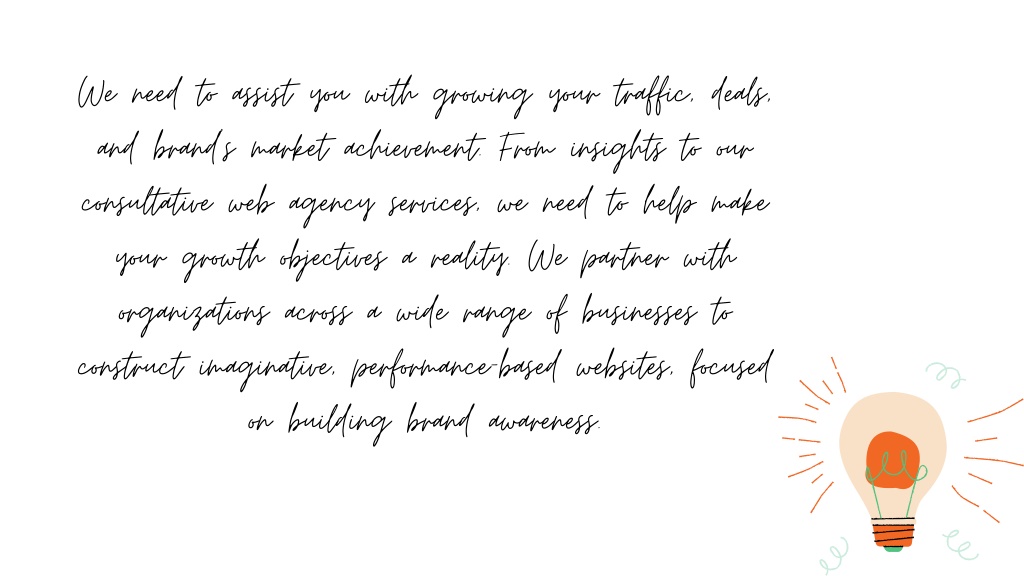 We need to assist you with growing your traffic, deals,
and brand's market achievement. From insights to our
consultative web agency services, we need to help make
your growth objectives a reality. We partner with
organizations across a wide range of businesses to
construct imaginative, performance-based websites, focused
on building brand awareness.